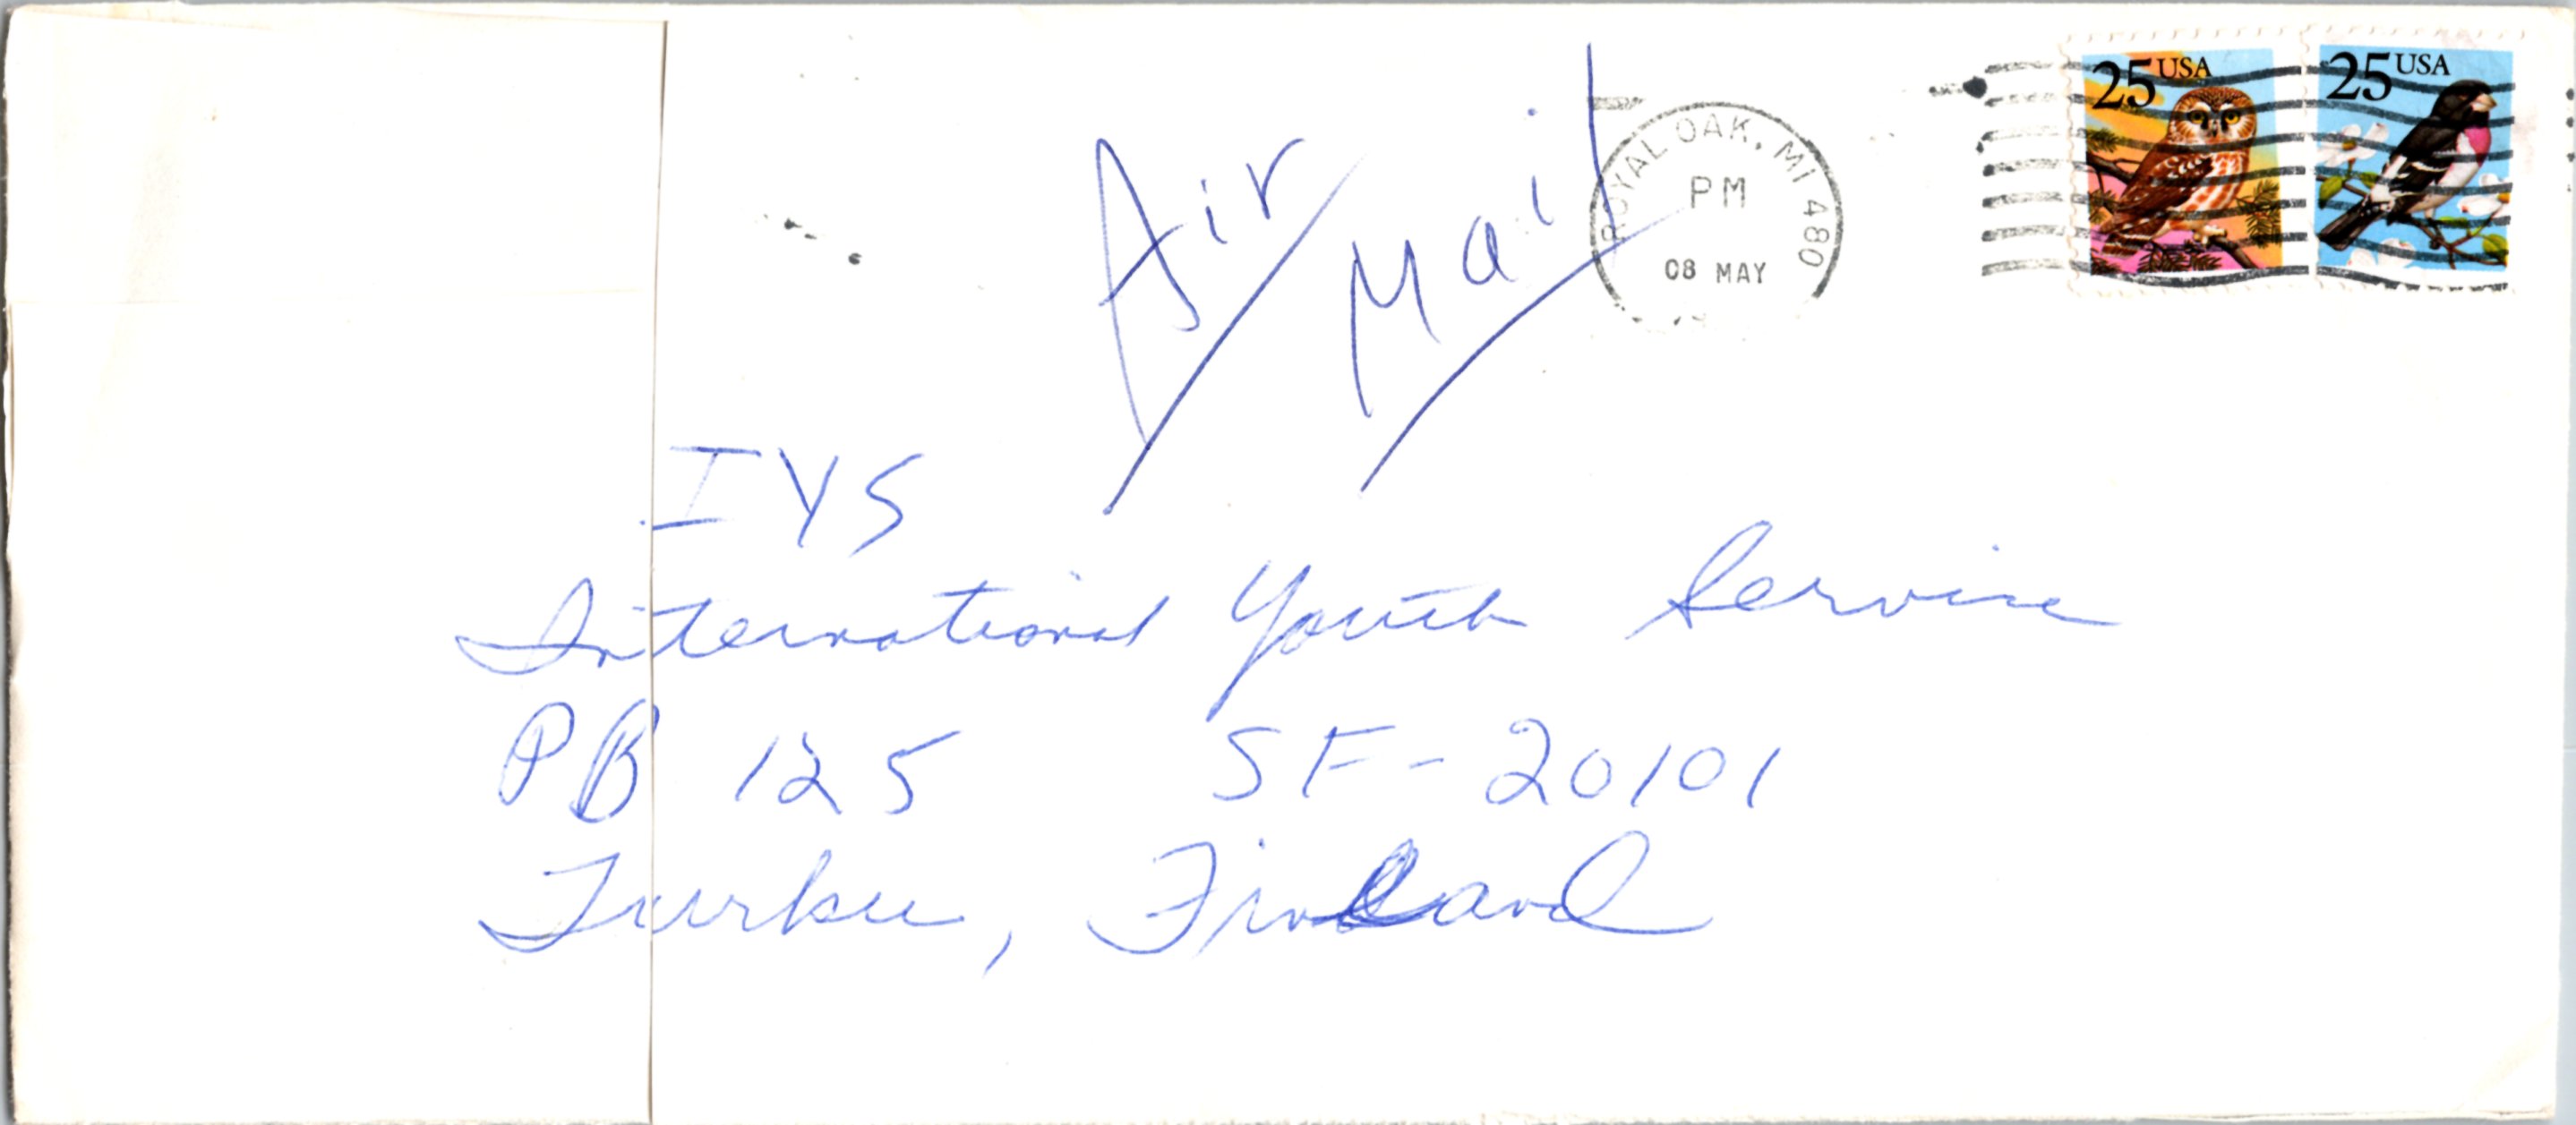 25 USA
25 USA
ROYAL OAK, MI 480
PM
08 MAY
Air Mail
IYS
International Youth Service
PB 125 SF-20101
Turku, Finland